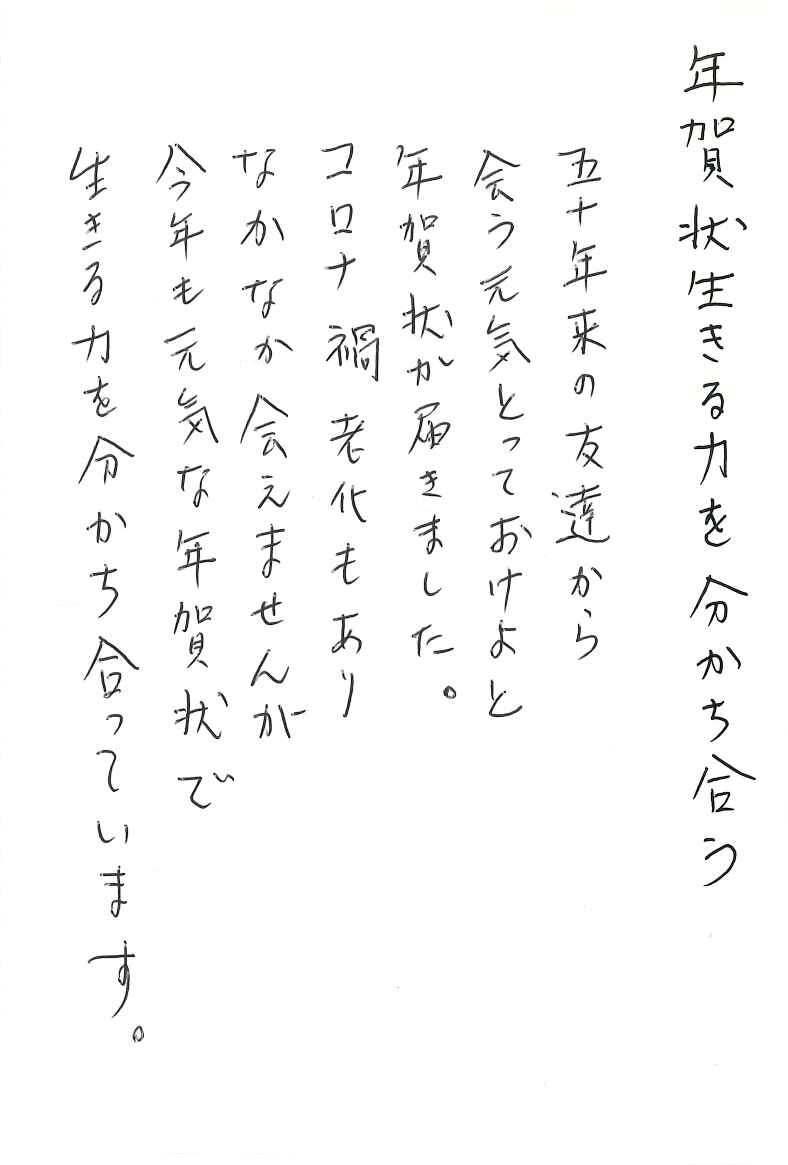 年賀状生きる力を分かち合う
五十年来の友達から
会う元気とっておけよと
年賀状が届きました。
コロナ禍老化もあり
なかなか会えませんが
今年も元気な年賀状で
生きる力を分かち合っています。